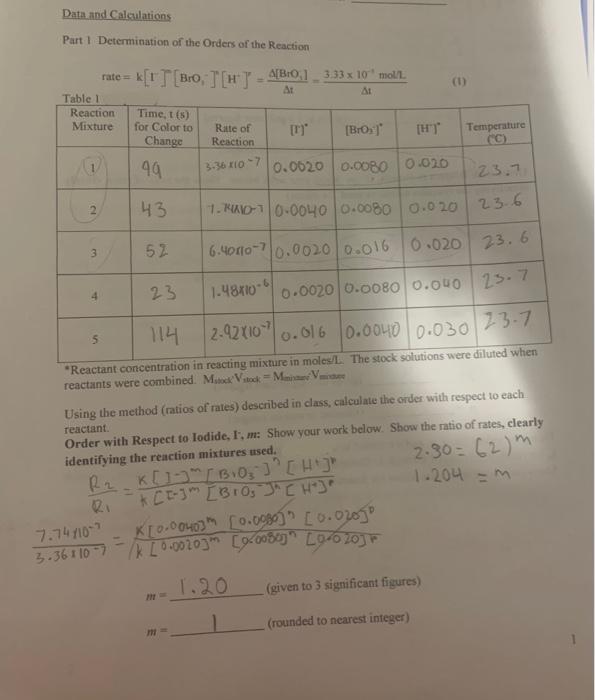 Data and Calculations
Part 1 Determination of the Orders of the Reaction
rate = k[I⁻]ᵐ [BrO₃⁻]ⁿ [H⁺]ᵖ = Δ[BrO₃] / Δt = 3.33 x 10 mol/L / Δt (1)
Table 1
Reaction Mixture | Time, t (s) for Color to Change | Rate of Reaction | [I⁻]* | [BrO₃⁻]* | [H⁺]* | Temperature (°C)
1 | 99 | 3.36 x10⁻⁷ | 0.0020 | 0.0080 | 0.020 | 23.7
2 | 43 | 7.74x10⁻⁷ | 0.0040 | 0.0080 | 0.020 | 23.6
3 | 52 | 6.40x10⁻⁷ | 0.0020 | 0.016 | 0.020 | 23.6
4 | 23 | 1.48x10⁻⁶ | 0.0020 | 0.0080 | 0.040 | 23.7
5 | 114 | 2.92x10⁻⁷ | 0.016 | 0.0040 | 0.030 | 23.7
*Reactant concentration in reacting mixture in moles/L. The stock solutions were diluted when
reactants were combined. M stock V stock = M mixture V mixture
Using the method (ratios of rates) described in class, calculate the order with respect to each
reactant.
Order with Respect to Iodide, I⁻, m: Show your work below. Show the ratio of rates, clearly
identifying the reaction mixtures used.
2.30 = (2)ᵐ
R₂ / R₁ = K[I⁻]ᵐ [BrO₃⁻]ⁿ [H⁺]ᵖ / k[I⁻]ᵐ [BrO₃⁻]ⁿ [H⁺]ᵖ
1.204 = m
7.74x10⁻⁷ / 3.36x10⁻⁷ = K[0.0040]ᵐ [0.0080]ⁿ [0.020]ᵖ / k[0.0020]ᵐ [0.0080]ⁿ [0.020]ᵖ
m = 1.20 (given to 3 significant figures)
m = 1 (rounded to nearest integer)
1